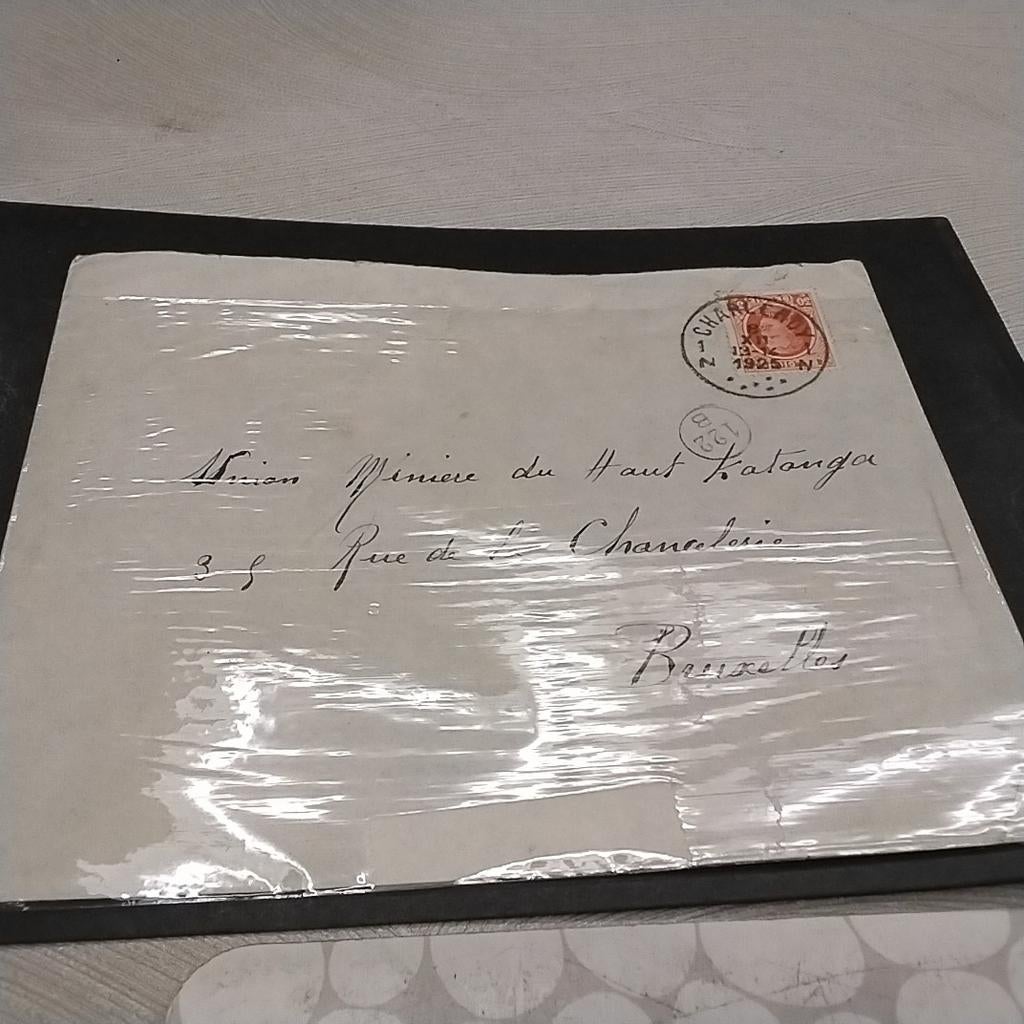 CHARLEROI
1 1
1925
N N
122
B
Union Miniere du Haut Katanga
35 Rue de la Chancelerie
Bruxelles